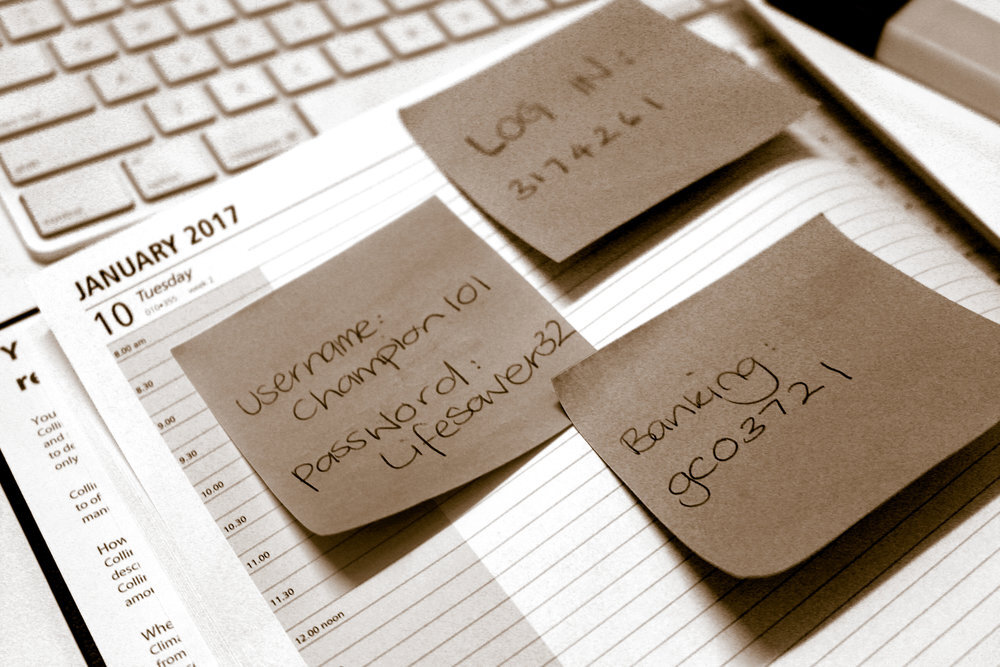 LOG IN:
3174261
JANUARY 2017
10 Tuesday
010•355 week 2
8.00 am
8.30
9.00
9.30
10.00
10.30
11.00
11.30
12.00 noon
username:
champion101
password:
Lifesaver32
Banking:
gco3721
Y
You
Colli
and
to de
only
Collin
to of
man
How
Collin
desc
Collin
amo
Whe
Clima
from